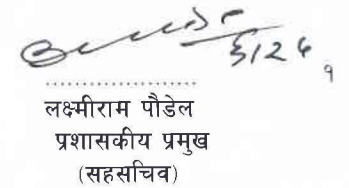 ..............................
लक्ष्मीराम पौडेल
प्रशासकीय प्रमुख
(सहसचिव)